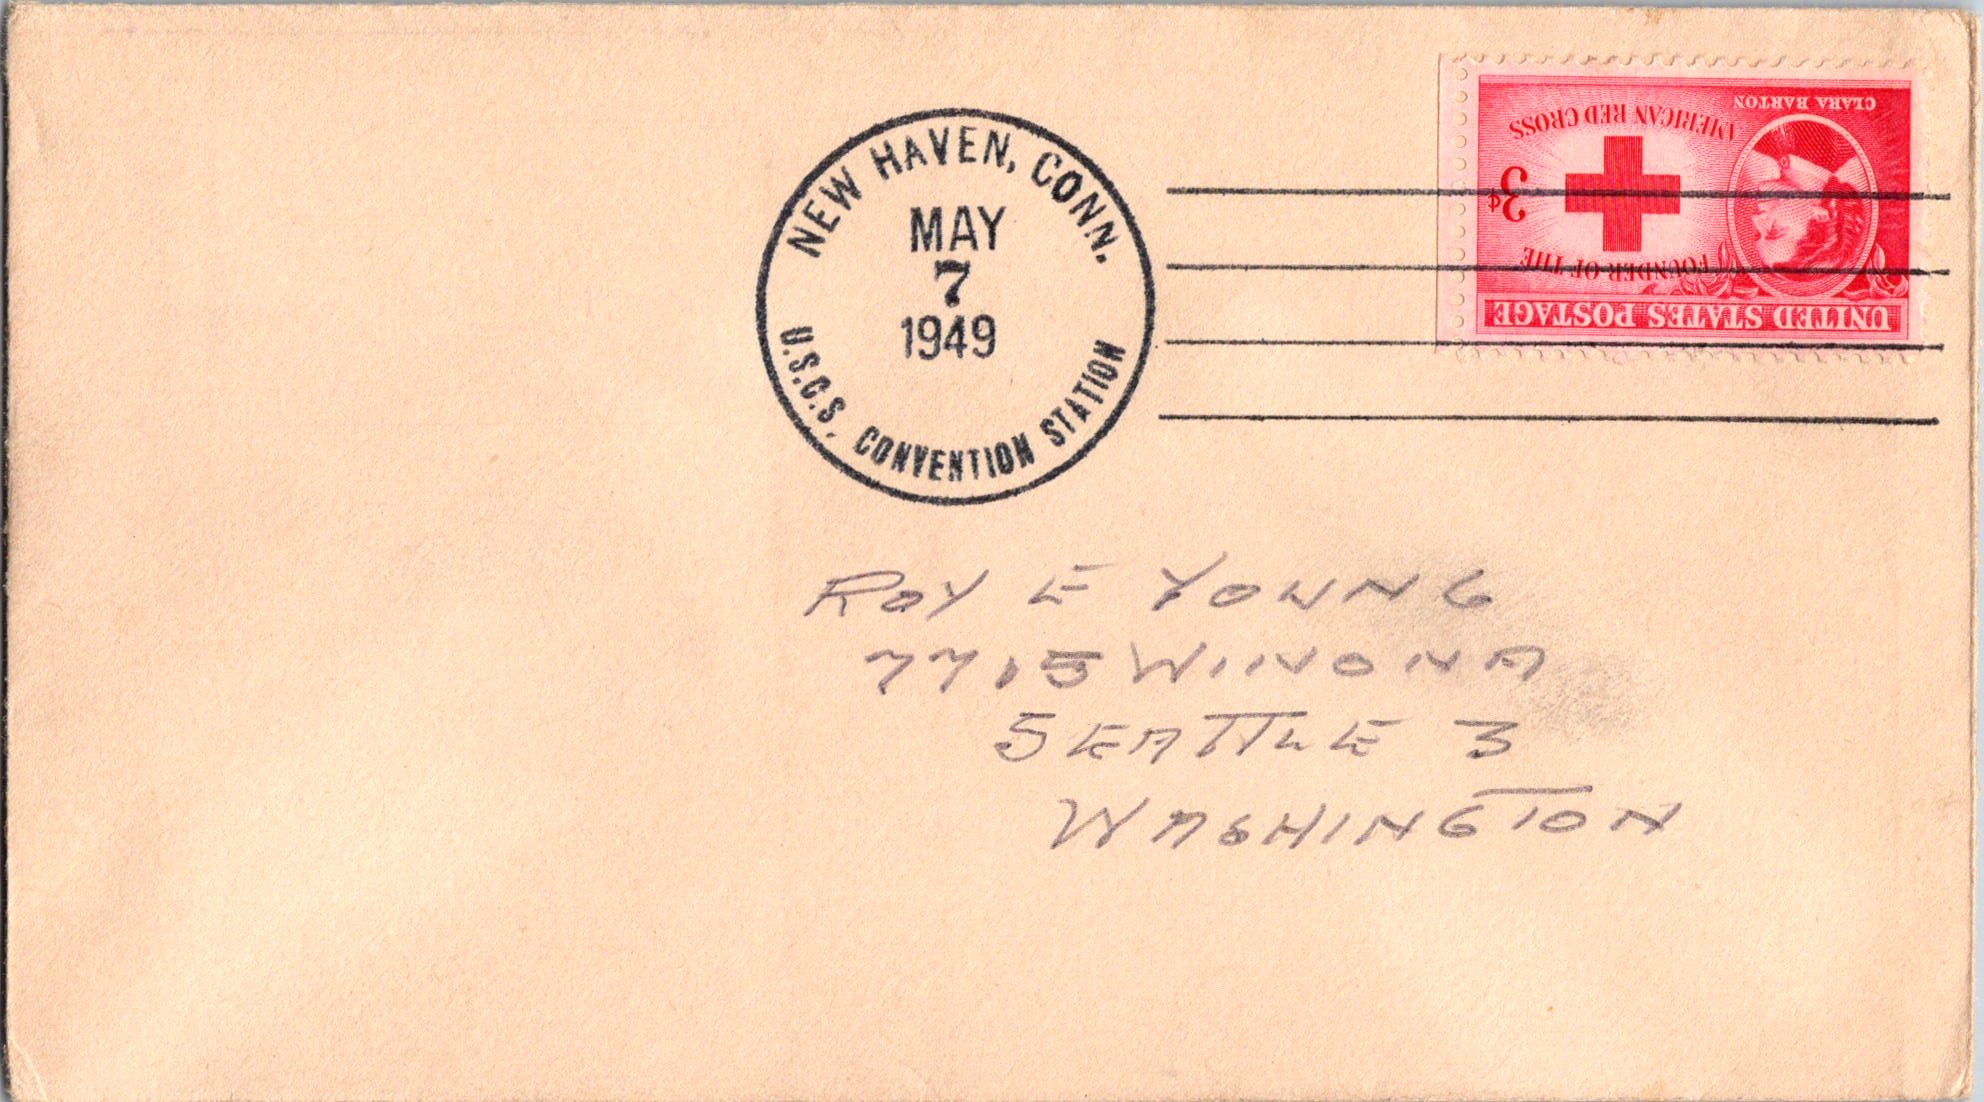 NEW HAVEN, CONN.
MAY
7
1949
U.S.C.S. CONVENTION STATION
UNITED STATES POSTAGE
FOUNDER OF THE
3¢
AMERICAN RED CROSS
CLARA BARTON
ROY E YOUNG
7715 WINONA
SEATTLE 3
WASHINGTON